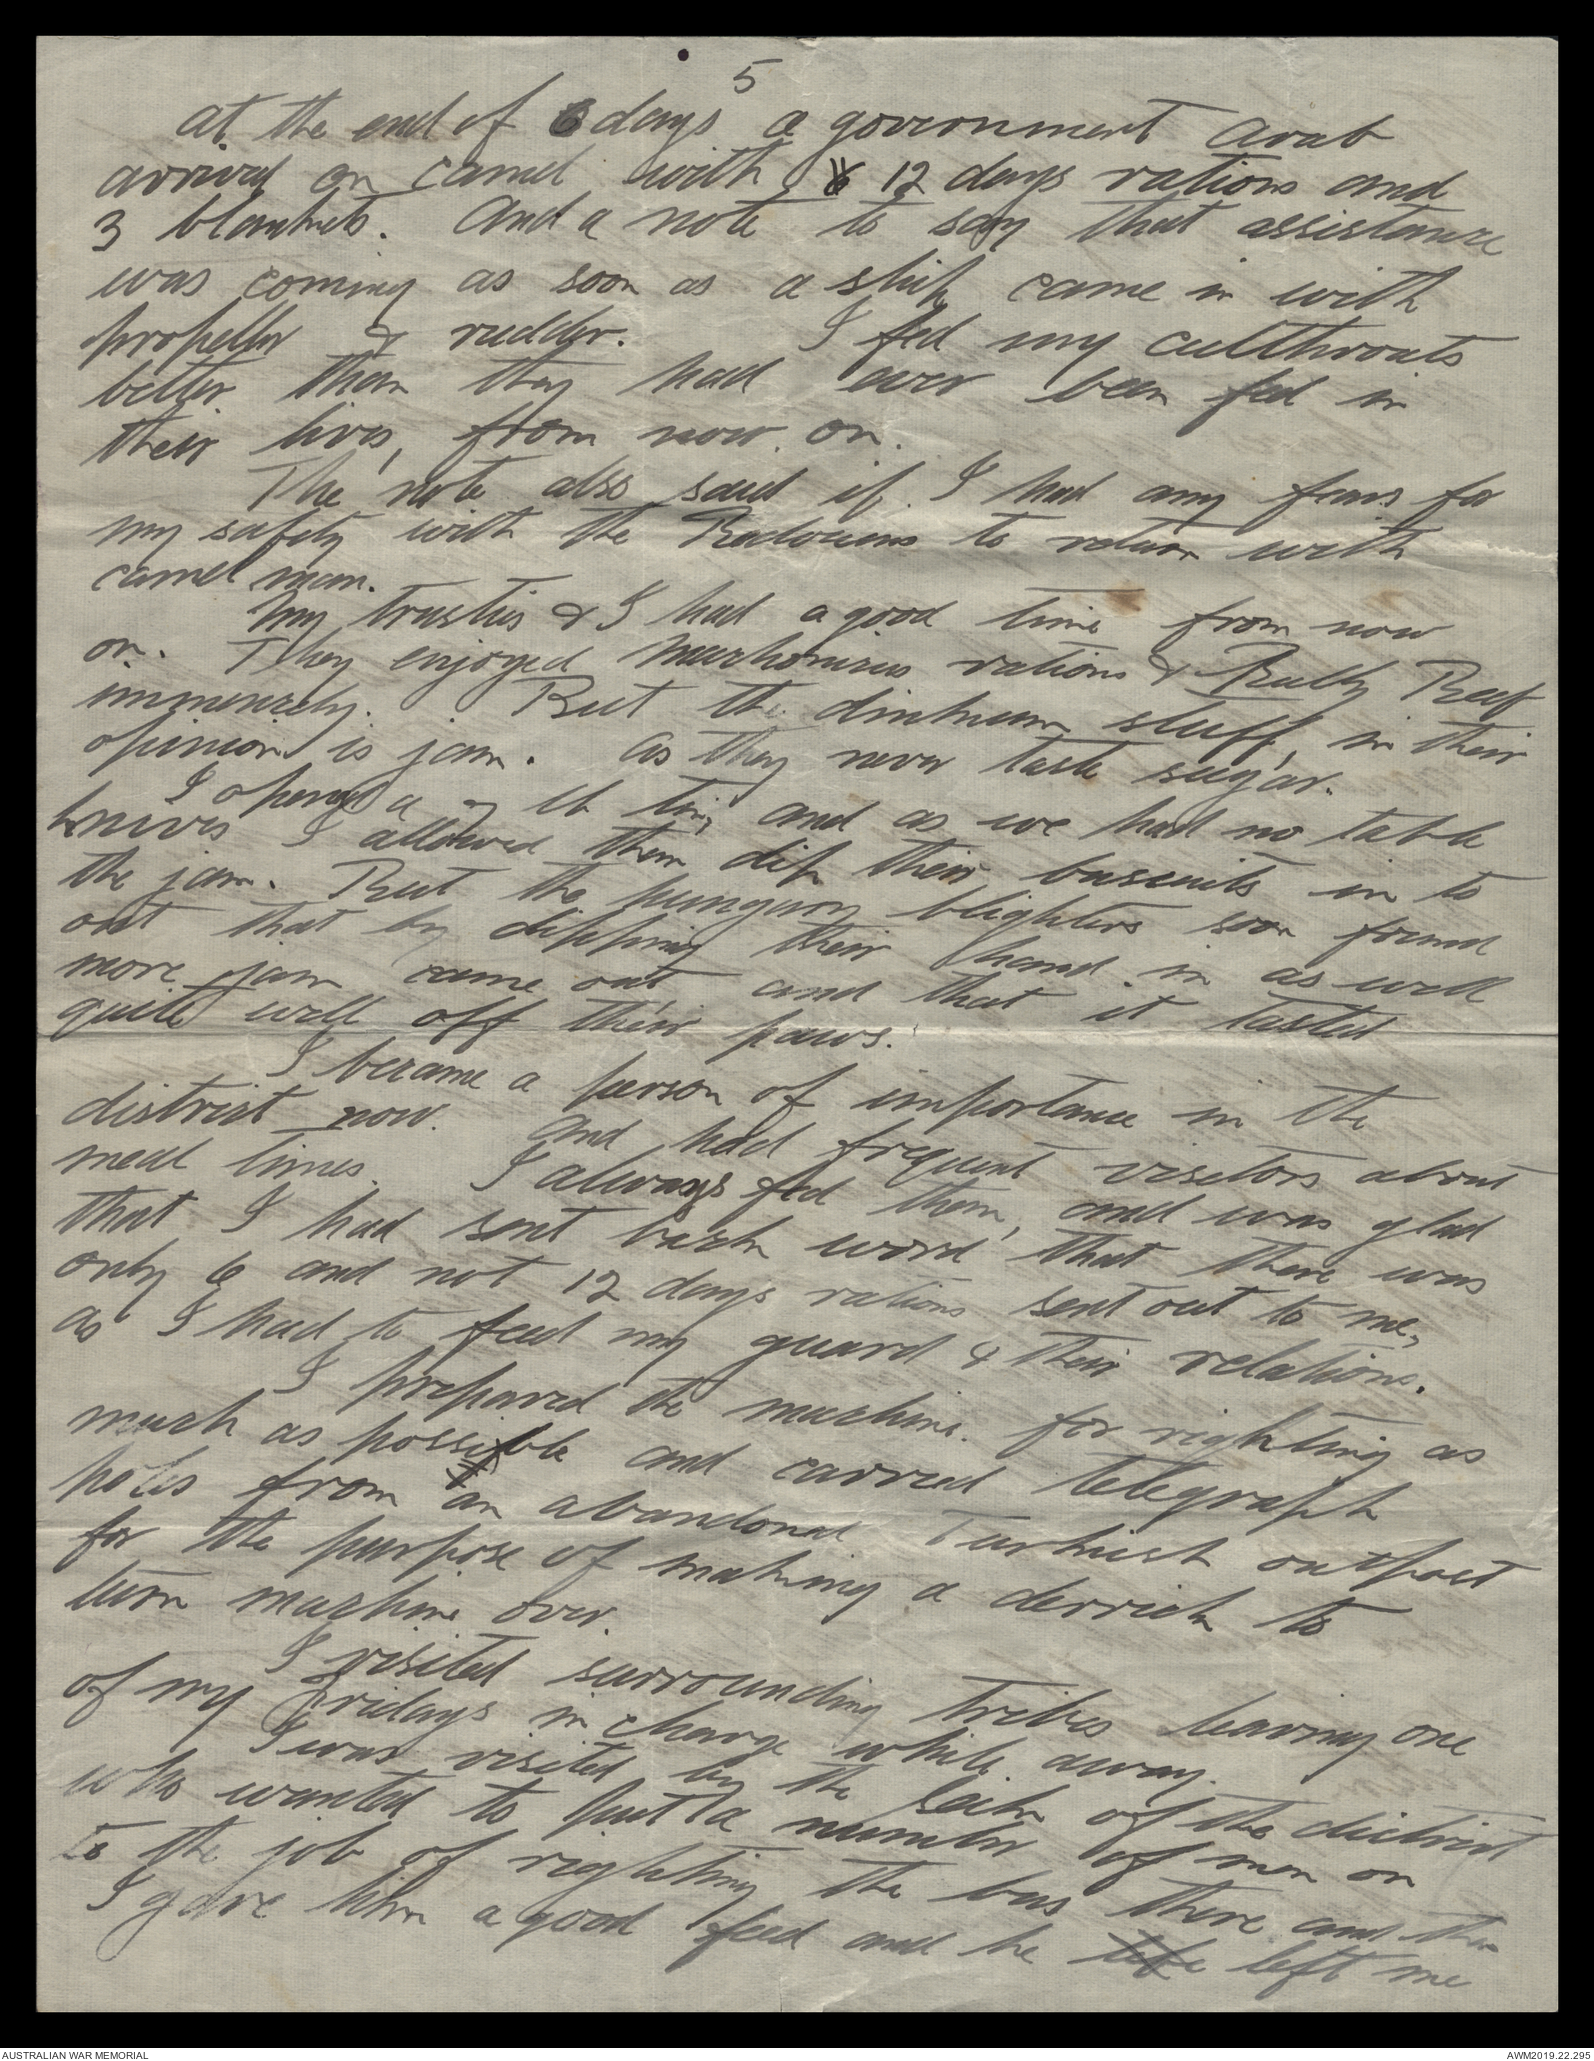 5
at the end of 3 days a government Arab
arrived on camel with 12 days rations and
3 blankets. And a note to say that assistance
was coming as soon as a ship came in with
propeller & rudder. I fed my cutthroats
better than they had ever been fed in
their lives, from now on.
The note also said if I had any fears for
my safety with the Bedouins to return with
camel man.
My trusties & I had a good time from now
on. They enjoyed rations & Bully Beef
immensely. But the dinkum stuff, in their
opinion is jam. As they never taste sugar.
I opened a lb tin, and as we had no table
knives I allowed them dip their buscuits in to
the jam. But the hungary blighters soon found
out that by dipping their hand in as well
more jam came out and that it tasted
quite well off their paws.
I became a person of importance in the
district now. And had frequent visitors about
meal times. I always fed them, and was glad
that I had sent back word that there was
only 6 and not 12 days rations sent out to me,
as I had to feed my guard & their relations.
I prepared the machine for righting as
much as possible and carried telegraph
poles from an abandoned Turkish outpost
for the purpose of making a derrick to
turn machine over.
I visited surrounding tribes leaving one
of my Fridays in charge while away.
I was visited by the of the district
who wanted to put a number of men on
to the job of righting the bus there and then
I gave him a good feed and he left me
AUSTRALIAN WAR MEMORIAL
AWM2019.22.295